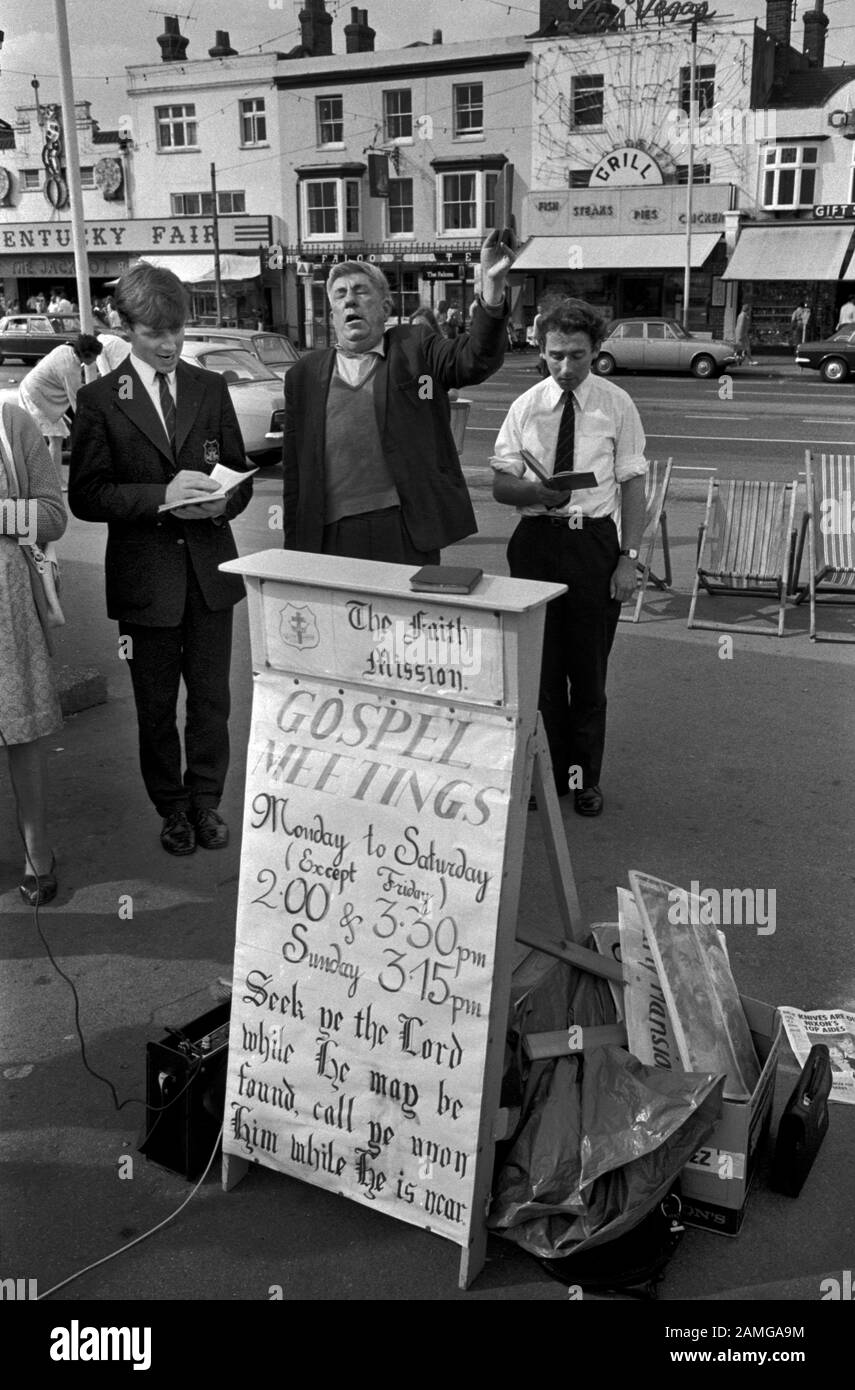 Las Vegas
GRILL
FISH STEAKS PIES CHICKEN
GIFT S
ENTUCKY FAIR
THE JACK
THE FALCON
The Falcon
The Faith
Mission.
GOSPEL
MEETINGS
Monday to Saturday
(Except Friday)
2.00 & 3.30pm
Sunday 3.15pm
Seek ye the Lord
while He may be
found, call ye upon
Him while He is near.
KNIVES ARE OU
NIXON'S
TOP AIDES
alamy
Image ID: 2AMGA9M
www.alamy.com